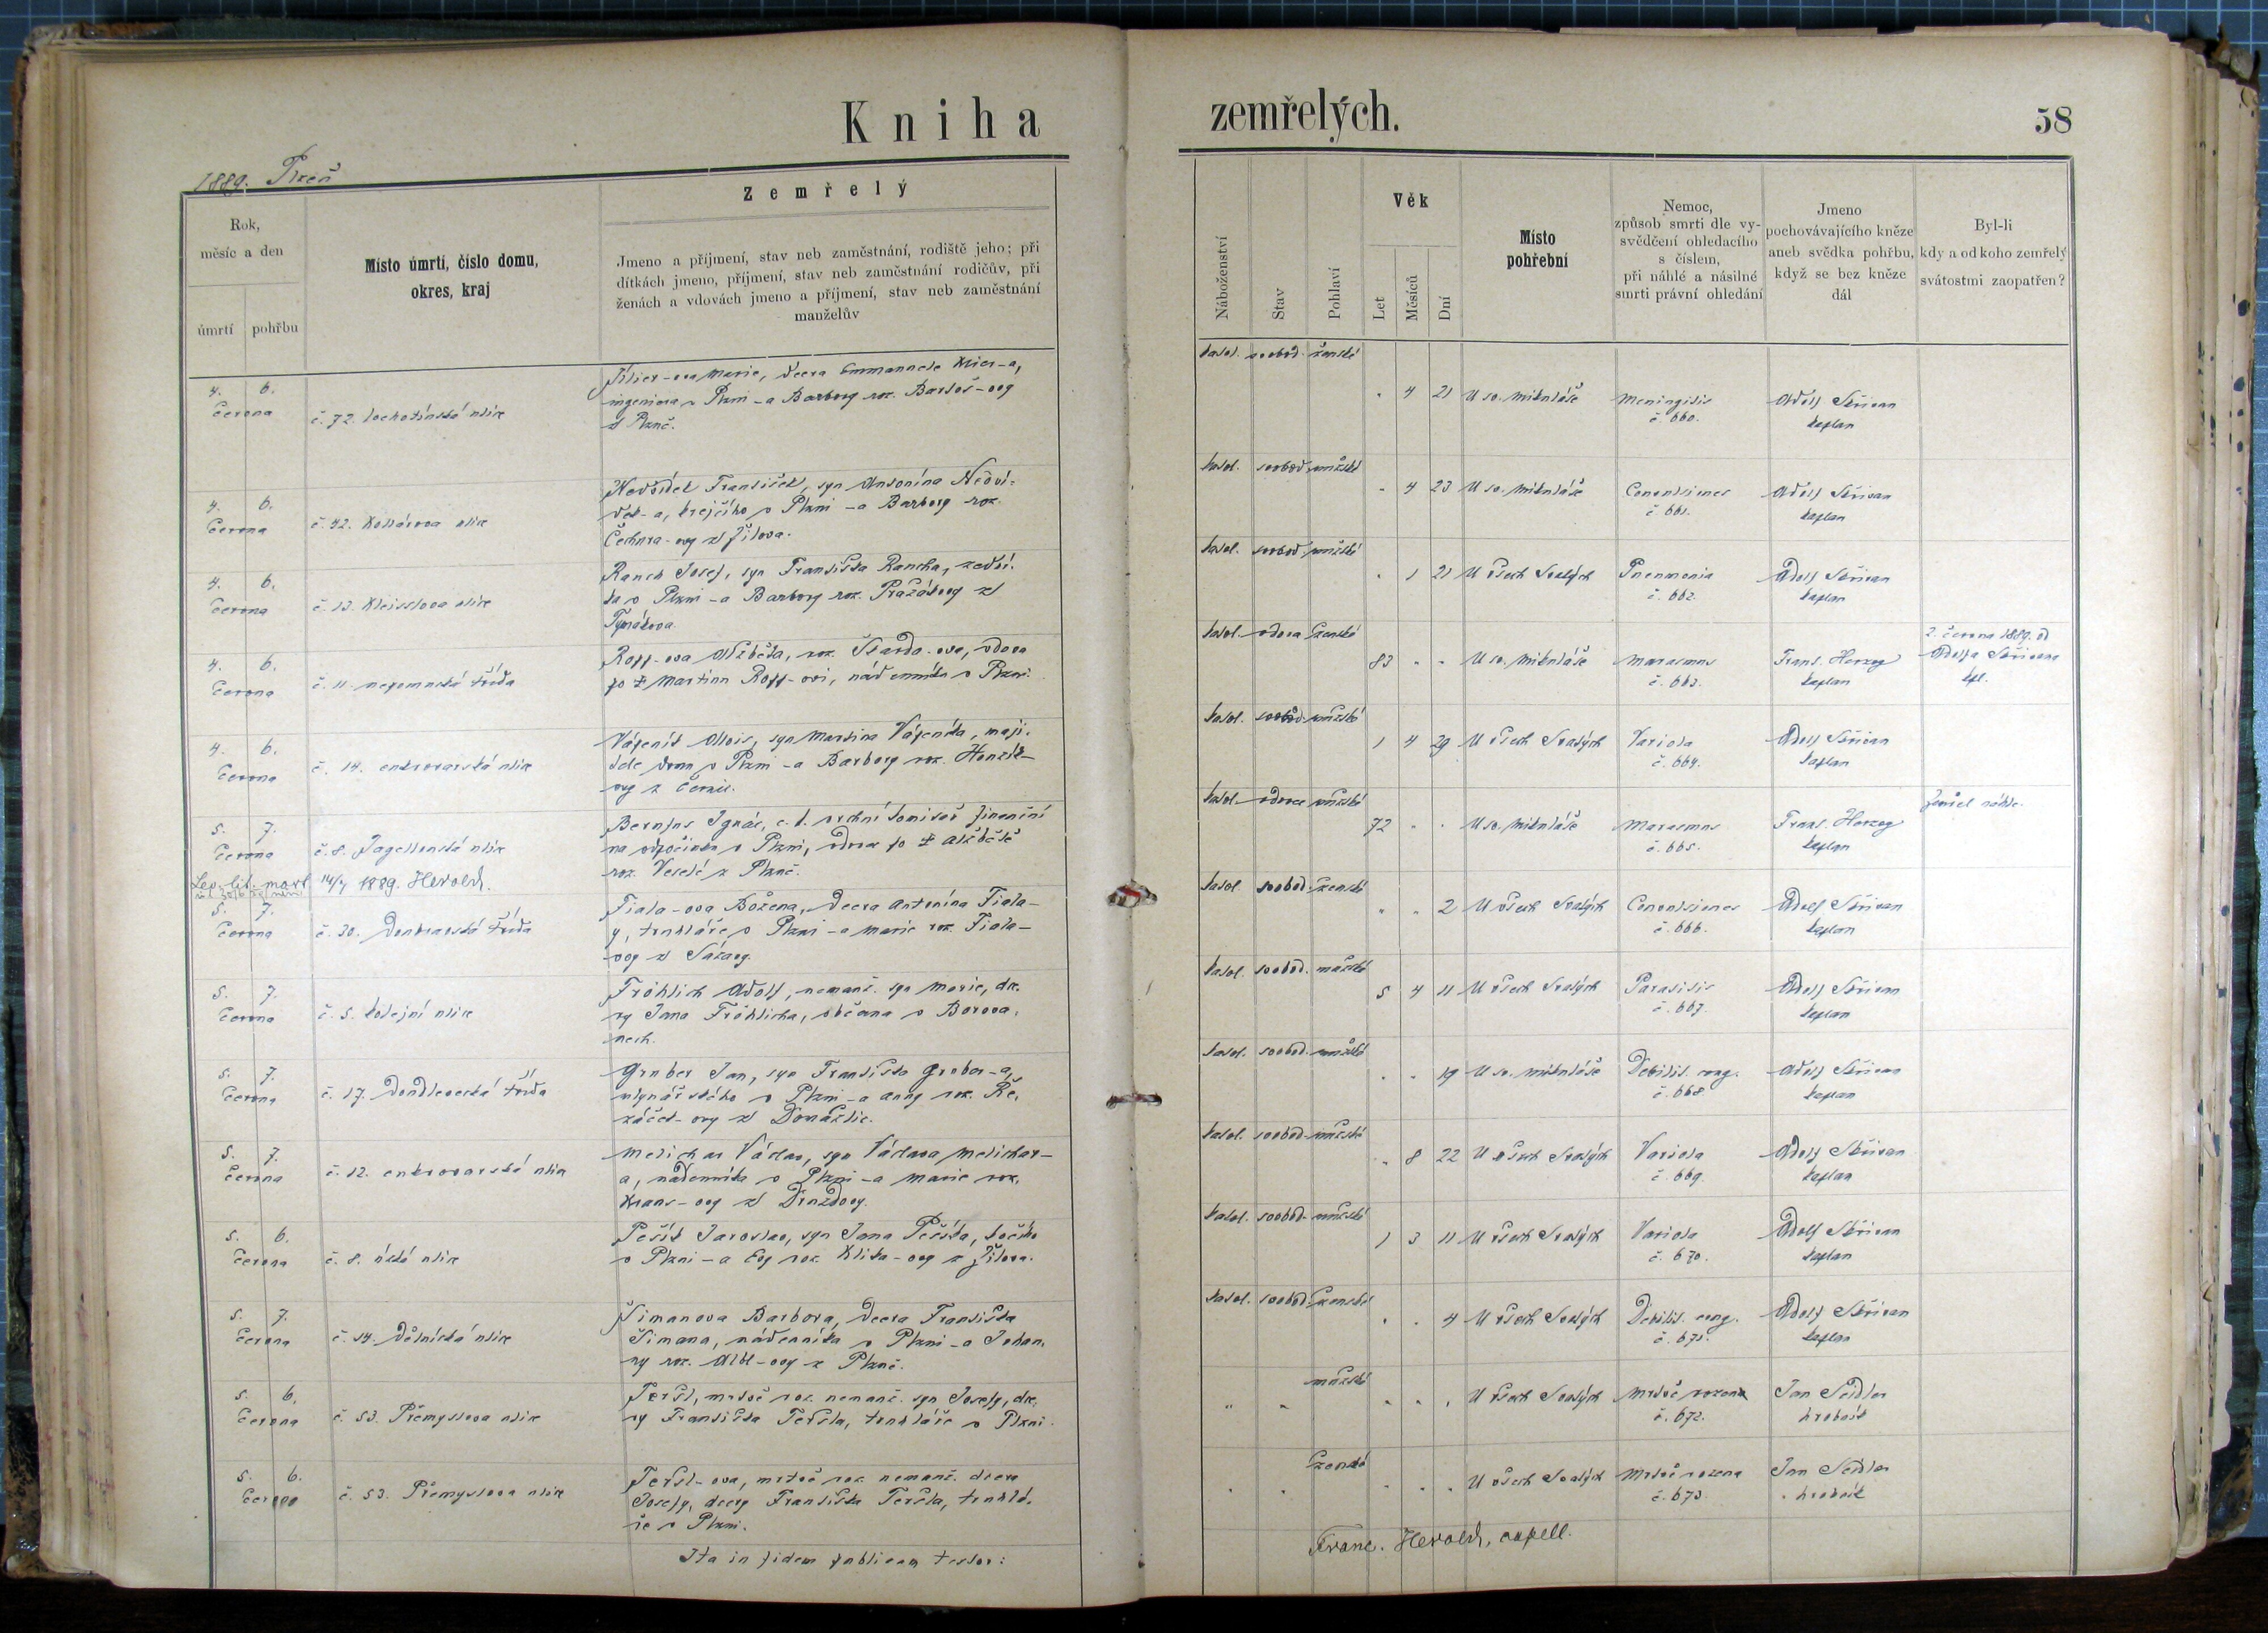 Kniha zemřelých.
58
1889. Plzeň
Rok,
měsíc a den
úmrtí
pohřbu
Místo úmrtí, číslo domu,
okres, kraj
Zemřelý
Jmeno a příjmení, stav neb zaměstnání, rodiště jeho; při
dítkách jmeno, příjmení, stav neb zaměstnání rodičův, při
ženách a vdovách jmeno a příjmení, stav neb zaměstnání
manželův
Náboženství
Stav
Pohlaví
Věk
Let
Měsíců
Dní
Místo
pohřební
Nemoc,
způsob smrti dle vy-
svědčení ohledacího
s číslem,
při náhlé a násilné
smrti právní ohledání
Jmeno
pochovávajícího kněze
aneb svědka pohřbu,
když se bez kněze
dál
Byl-li
kdy a od koho zemřelý
svátostmi zaopatřen?
4. 6.
června
č. 72. lochotínská ulice
Marie, dcera Emmanuele
ingeniera v Plzni -a Barbory roz. Bartoš-ovy
z Plzně.
katol. svobod. ženské
. 4 21 U sv. Mikuláše
Meningitis
č. 660.
Adolf Skřivan
kaplan
4. 6.
června
č. 42. Kollárova ulice
František, syn Antonína
krejčího v Plzni -a Barbory roz.
Čechura-ovy z Jílova.
katol. svobod. mužské
. 4 23 U sv. Mikuláše
Convulsiones
č. 661.
Adolf Skřivan
kaplan
4. 6.
června
č. 13. Kleisslova ulice
Rauch Josef, syn Františka Raucha, zední-
ka v Plzni -a Barbory roz. Pražákovy z
katol. svobod. mužské
. 1 21 U všech Svatých
Pneumonia
č. 662.
Adolf Skřivan
kaplan
4. 6.
června
č. 11. nepomucká třída
Ropp-ova Alžběta, roz. Škarda-ova, vdova
po ‡ Martinu Ropp-ovi, nádenníku v Plzni.
katol. vdova ženské
83 . . U sv. Mikuláše
Marasmus
č. 663.
Frant. Herzog
kaplan
2. června 1889. od
Adolfa Skřivana
kpl.
4. 6.
června
č. 14. cukrovarská ulice
Vágenít Alois, syn Martina Vágeníta, maji-
tele domu v Plzni -a Barbory roz. Honzík-
ovy z Černic.
katol. svobod. mužské
1 4 29 U všech Svatých
Variola
č. 664.
Adolf Skřivan
kaplan
5. 7.
června
č. 8. Jagellonská ulice
Ignác, c. k. vrchní komisař finanční
na odpočinku v Plzni, vdovec po ‡ Alžbětě
roz. Veselé z Plzně.
katol. vdovec mužské
72 . . U sv. Mikuláše
Marasmus
č. 665.
Frant. Herzog
kaplan
Zemřel náhle.
Lev. lit. mort. 14/7 1889. Herold.
5. 7.
června
č. 30. Doubravská třída
Fiala-ova Božena, dcera Antonína Fiala-
y, truhláře v Plzni -a Marie roz. Fiala-
ovy z Sázavy.
katol. svobod. ženské
. . 2 U všech Svatých
Convulsiones
č. 666.
Adolf Skřivan
kaplan
5. 7.
června
č. 5. kolejní ulice
Fröhlich Adolf, nemanž. syn Marie, dce-
ry Jana Fröhlicha, občana v Borova-
nech.
katol. svobod. mužské
5 4 11 U všech Svatých
č. 667.
Adolf Skřivan
kaplan
5. 7.
června
č. 17. Doudlevecká třída
Gruber Jan, syn Františka Gruber-a,
mlynářského v Plzni -a Anny roz. Ře-
záček-ovy z Domažlic.
katol. svobod. mužské
. . 19 U sv. Mikuláše
Debilit. cong.
č. 668.
Adolf Skřivan
kaplan
5. 7.
června
č. 12. cukrovarská ulice
Melichar Václav, syn Václava Melichar-
a, nádenníka v Plzni -a Marie roz.
Kraus-ovy z Druzdovy.
katol. svobod. mužské
. 8 22 U všech Svatých
Variola
č. 669.
Adolf Skřivan
kaplan
5. 6.
června
č. 8. úzká ulice
Pešík Jaroslav, syn Jana Pešíka, kočího
v Plzni -a Evy roz. Klika-ovy z Jílova.
katol. svobod. mužské
1 3 11 U všech Svatých
Variola
č. 670.
Adolf Skřivan
kaplan
5. 7.
června
č. 14. Dělnická ulice
Šimanova Barbora, dcera Františka
Šimana, nádenníka v Plzni -a Johan-
ny roz. Albl-ovy z Plzně.
katol. svobod. ženské
. . 4 U všech Svatých
Debilit. cong.
č. 671.
Adolf Skřivan
kaplan
5. 6.
června
č. 53. Přemyslova ulice
Teršl, mrtvě roz. nemanž. syn Josefy, dce-
ry Františka Teršla, truhláře v Plzni.
" . mužské
. . . U všech Svatých
Mrtvě rozena
č. 672.
Jan Seidler
hrobník
5. 6.
června
č. 53. Přemyslova ulice
Teršl-ova, mrtvě roz. nemanž. dcera
Josefy, dcery Františka Teršla, truhlá-
ře v Plzni.
. . ženské
. . . U všech Svatých
Mrtvě rozena
č. 673.
Jan Seidler
hrobník
Ita in fidem publicam testor:
Franc. Herold, capell.